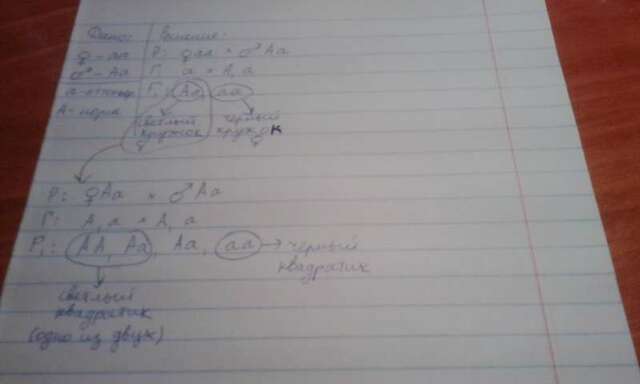 Дано:
♀ - aa
♂ - Aa
A - норм
Решение:
P: ♀ aa × ♂ Aa
Г: a × A, a
F₁: Aa, aa
светлый
кружок
♀
черный
кружок
♀
P: ♀ Aa × ♂ Aa
Г: A, a × A, a
F₁: AA, Aa, Aa, aa → черный
квадратик
светлый
квадратик
(одно из двух)